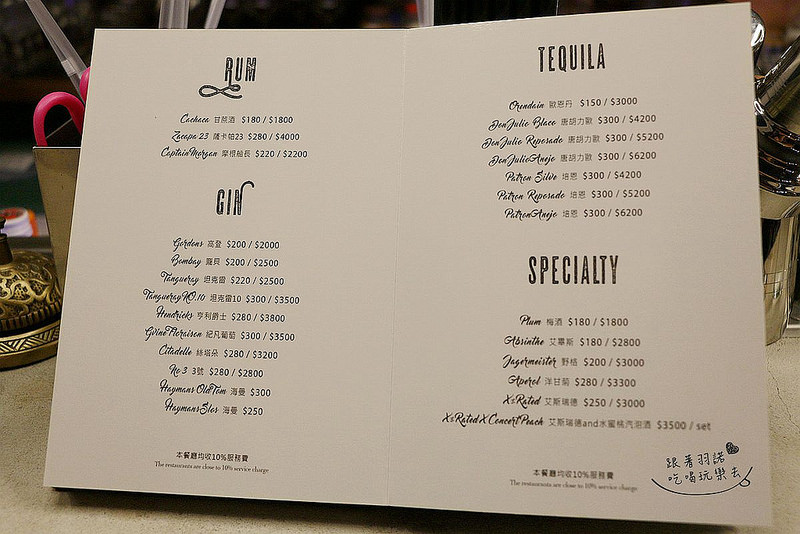 RUM
Cachaca 甘蔗酒 $180 / $1800
Zacapa 23 薩卡帕23 $280 / $4000
Captain Morgan 摩根船長 $220 / $2200
GIN
Gordons 高登 $200 / $2000
Bombay 龐貝 $200 / $2500
Tangueray 坦克雷 $220 / $2500
Tangueray NO.10 坦克雷10 $300 / $3500
Hendricks 亨利爵士 $280 / $3800
GVine Floraison 紀凡葡萄 $300 / $3500
Citadelle 絲塔朵 $280 / $3200
No 3 3號 $280 / $2800
Haymans Old Tom 海曼 $300
Haymans Slos 海曼 $250
本餐廳均收10%服務費
The restaurants are close to 10% service charge
TEQUILA
Orendain 歐恩丹 $150 / $3000
Don Julio Blaco 唐胡力歐 $300 / $4200
Don Julio Reposado 唐胡力歐 $300 / $5200
Don Julio Anejo 唐胡力歐 $300 / $6200
Patron Silve 培恩 $300 / $4200
Patron Reposado 培恩 $300 / $5200
Patron Anejo 培恩 $300 / $6200
SPECIALTY
Plum 梅酒 $180 / $1800
Absinthe 艾碧斯 $180 / $2800
Jagermeister 野格 $200 / $3000
Aperol 洋甘菊 $280 / $3300
X's Rated 艾斯瑞德 $250 / $3000
X's Rated X Concert Peach 艾斯瑞德and水蜜桃汽泡酒 $3500 / set
本餐廳均收10%服務費
The restaurants are close to 10% service charge
跟著羽諾
吃喝玩樂去